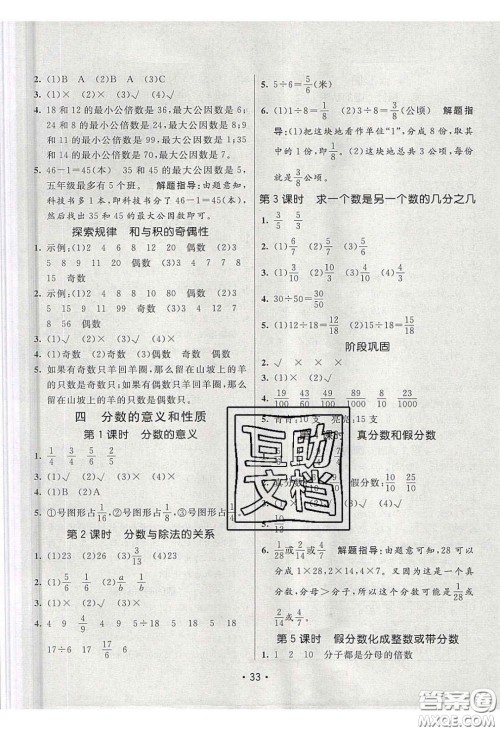 2. (1)B A (2)A (3)B
3. (1)× (2)× (3)√ (4)×
4. 18和12的最小公倍数是36,最大公因数是6;
24和8的最小公倍数是24,最大公因数是8;9
和11的最小公倍数是99,最大公因数是1;35
和14的最小公倍数是70,最大公因数是7。
5. 46-1=45(本) 35和45的最大公因数是5,
五年级最多有5个班。 解题指导:由题意知,
科技书多1本,即科技书分了46-1=45(本),
然后求出35和45的最大公因数即可。
探索规律 和与积的奇偶性
1. 示例:(1)2 4 6 10 12 20 偶数 (2)3
5 8 9 11 20 偶数 (3)1 2 3 4 5
8 15 奇数
2. 示例:(1)2 4 8 8 10 80 偶数 (2)5
9 15 9 11 99 奇数 (3)2 4 8 7
8 56 偶数
3. (1)√ (2)× (3)× (4)√
4. (1)奇数 (2)奇数 (3)偶数 (4)偶数
5. 如果有奇数只羊回羊圈,那么留在山坡上的羊
的只数是奇数;如果有偶数只羊回羊圈,那么留
在山坡上的羊的只数是偶数。
四 分数的意义和性质
第1课时 分数的意义
1. 1/4 3/4 5/6 4/9
2. √ × × ×
3. (1)B (2)A
5. ①号图形占1/16,②号图形占1/8,③号图形占
第2课时 分数与除法的关系
1. √ × × ×
2. (1)5/6 1/6 (2)a/b 1/b
3. 4 9 4 4 9 9 5÷18 5 18
17÷6 17 6
5. 5÷6=5/6(米)
6. (1)1÷8=1/8 (2)3÷8=3/8(公顷) 解题指
导:(1)把这块地看作单位“1”,分成8份,取其
中的1份,即1/8。(2)这块地总共3公顷,每份
就是3/8公顷。
第3课时 求一个数是另一个数的几分之几
1. 3/5 5/3
2. (1)6/7 (2)5/7 (3)2/7
3. (1)3/10 (2)
4. 30÷50=30/50
5. (1)12÷18=12/18 (2)15÷18=15/18
阶段巩固
2. √ × × ×
5. 肯肯:5支 亮亮:15支
课时 真分数和假分数
5. √ × √ ×
6. 1/28或2/14或4/7 解题指导:由题意可知,28可以
分成1×28,2×14,4×7。又因为这个分数是真
分数,分母>分子,所以这个分数可能是1/28或
2/14或4/7。
第5课时 假分数化成整数或带分数
1. 1 2 10 分子都是分母的倍数
• 33 •
互助
文档